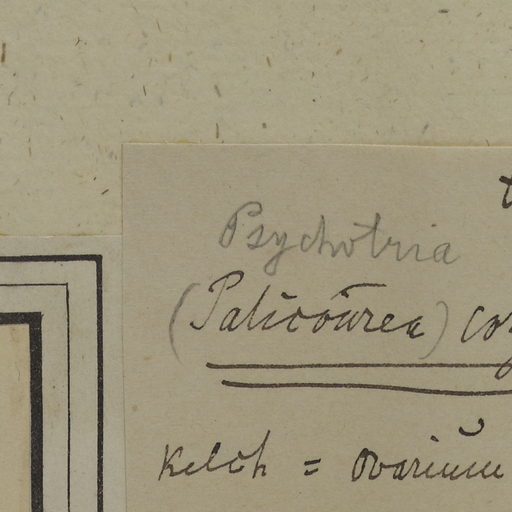 Psychotria
(Palicourea)
Kelch = ovarium